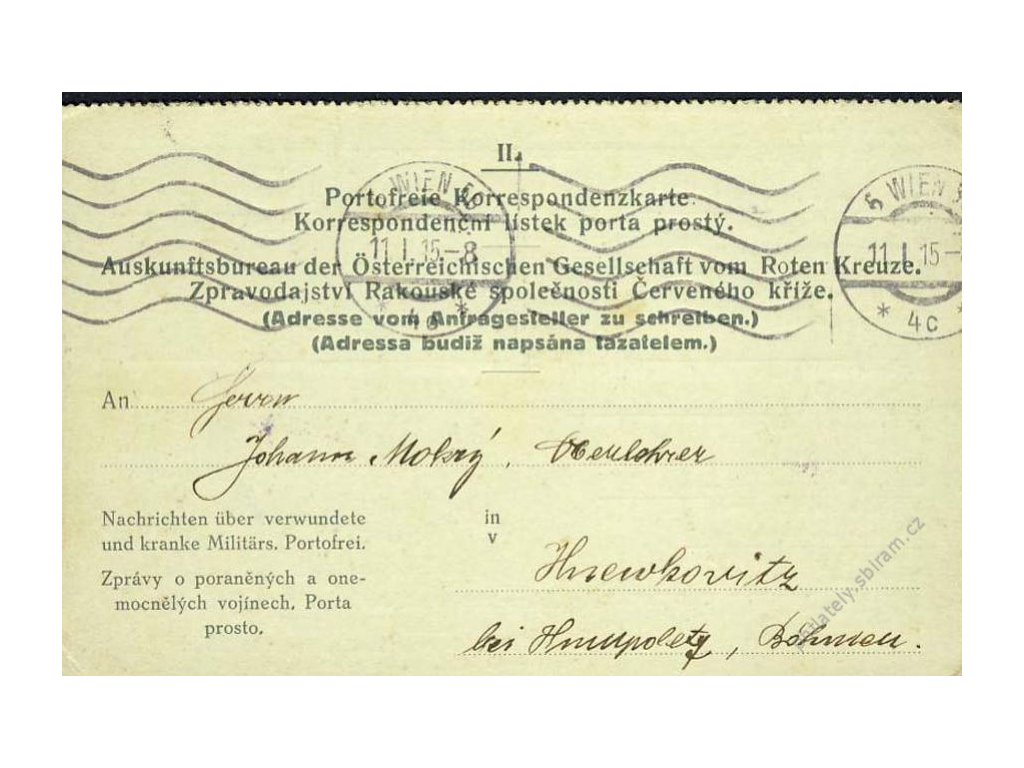 II.
Portofreie Korrespondenzkarte.
Korrespondenční lístek porta prostý.
Auskunftsbureau der Österreichischen Gesellschaft vom Roten Kreuze.
Zpravodajství Rakouské společnosti Červeného kříže.
(Adresse vom Anfragesteller zu schreiben.)
(Adressa budiž napsána tazatelem.)
WIEN
11.I.15-8
5 WIEN 5
11.I.15-
* 4c *
An Herrn
Johann Mokrý, Oberlehrer
Nachrichten über verwundete
und kranke Militärs. Portofrei.
Zprávy o poraněných a one-
mocnělých vojínech. Porta
prosto.
in
v
Hnewkovitz
bei Humpoletz, Böhmen.
filately.sbiram.cz